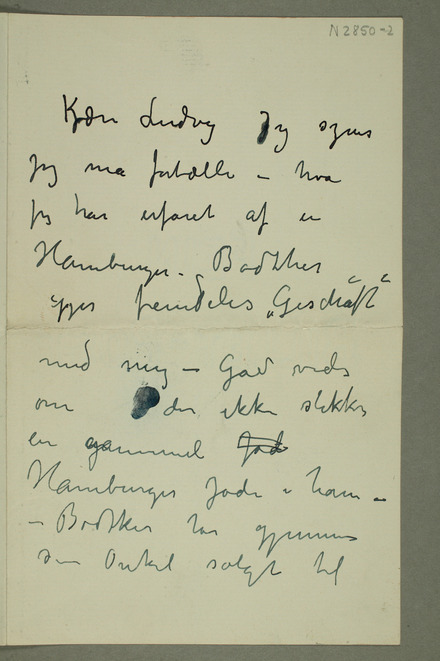 N 2850-2
Kjære Ludvig Jeg synes
jeg må fortælle – hva
jeg har erfaret af en
Hamburger. Bødtker
gjør fremdeles „Geschäft"
med mig – Gad vide
om der ikke stikker
en gammel Jøde
Hamburger Jøde i ham –
– Bødtker har gjennem
sin Onkel solgt til